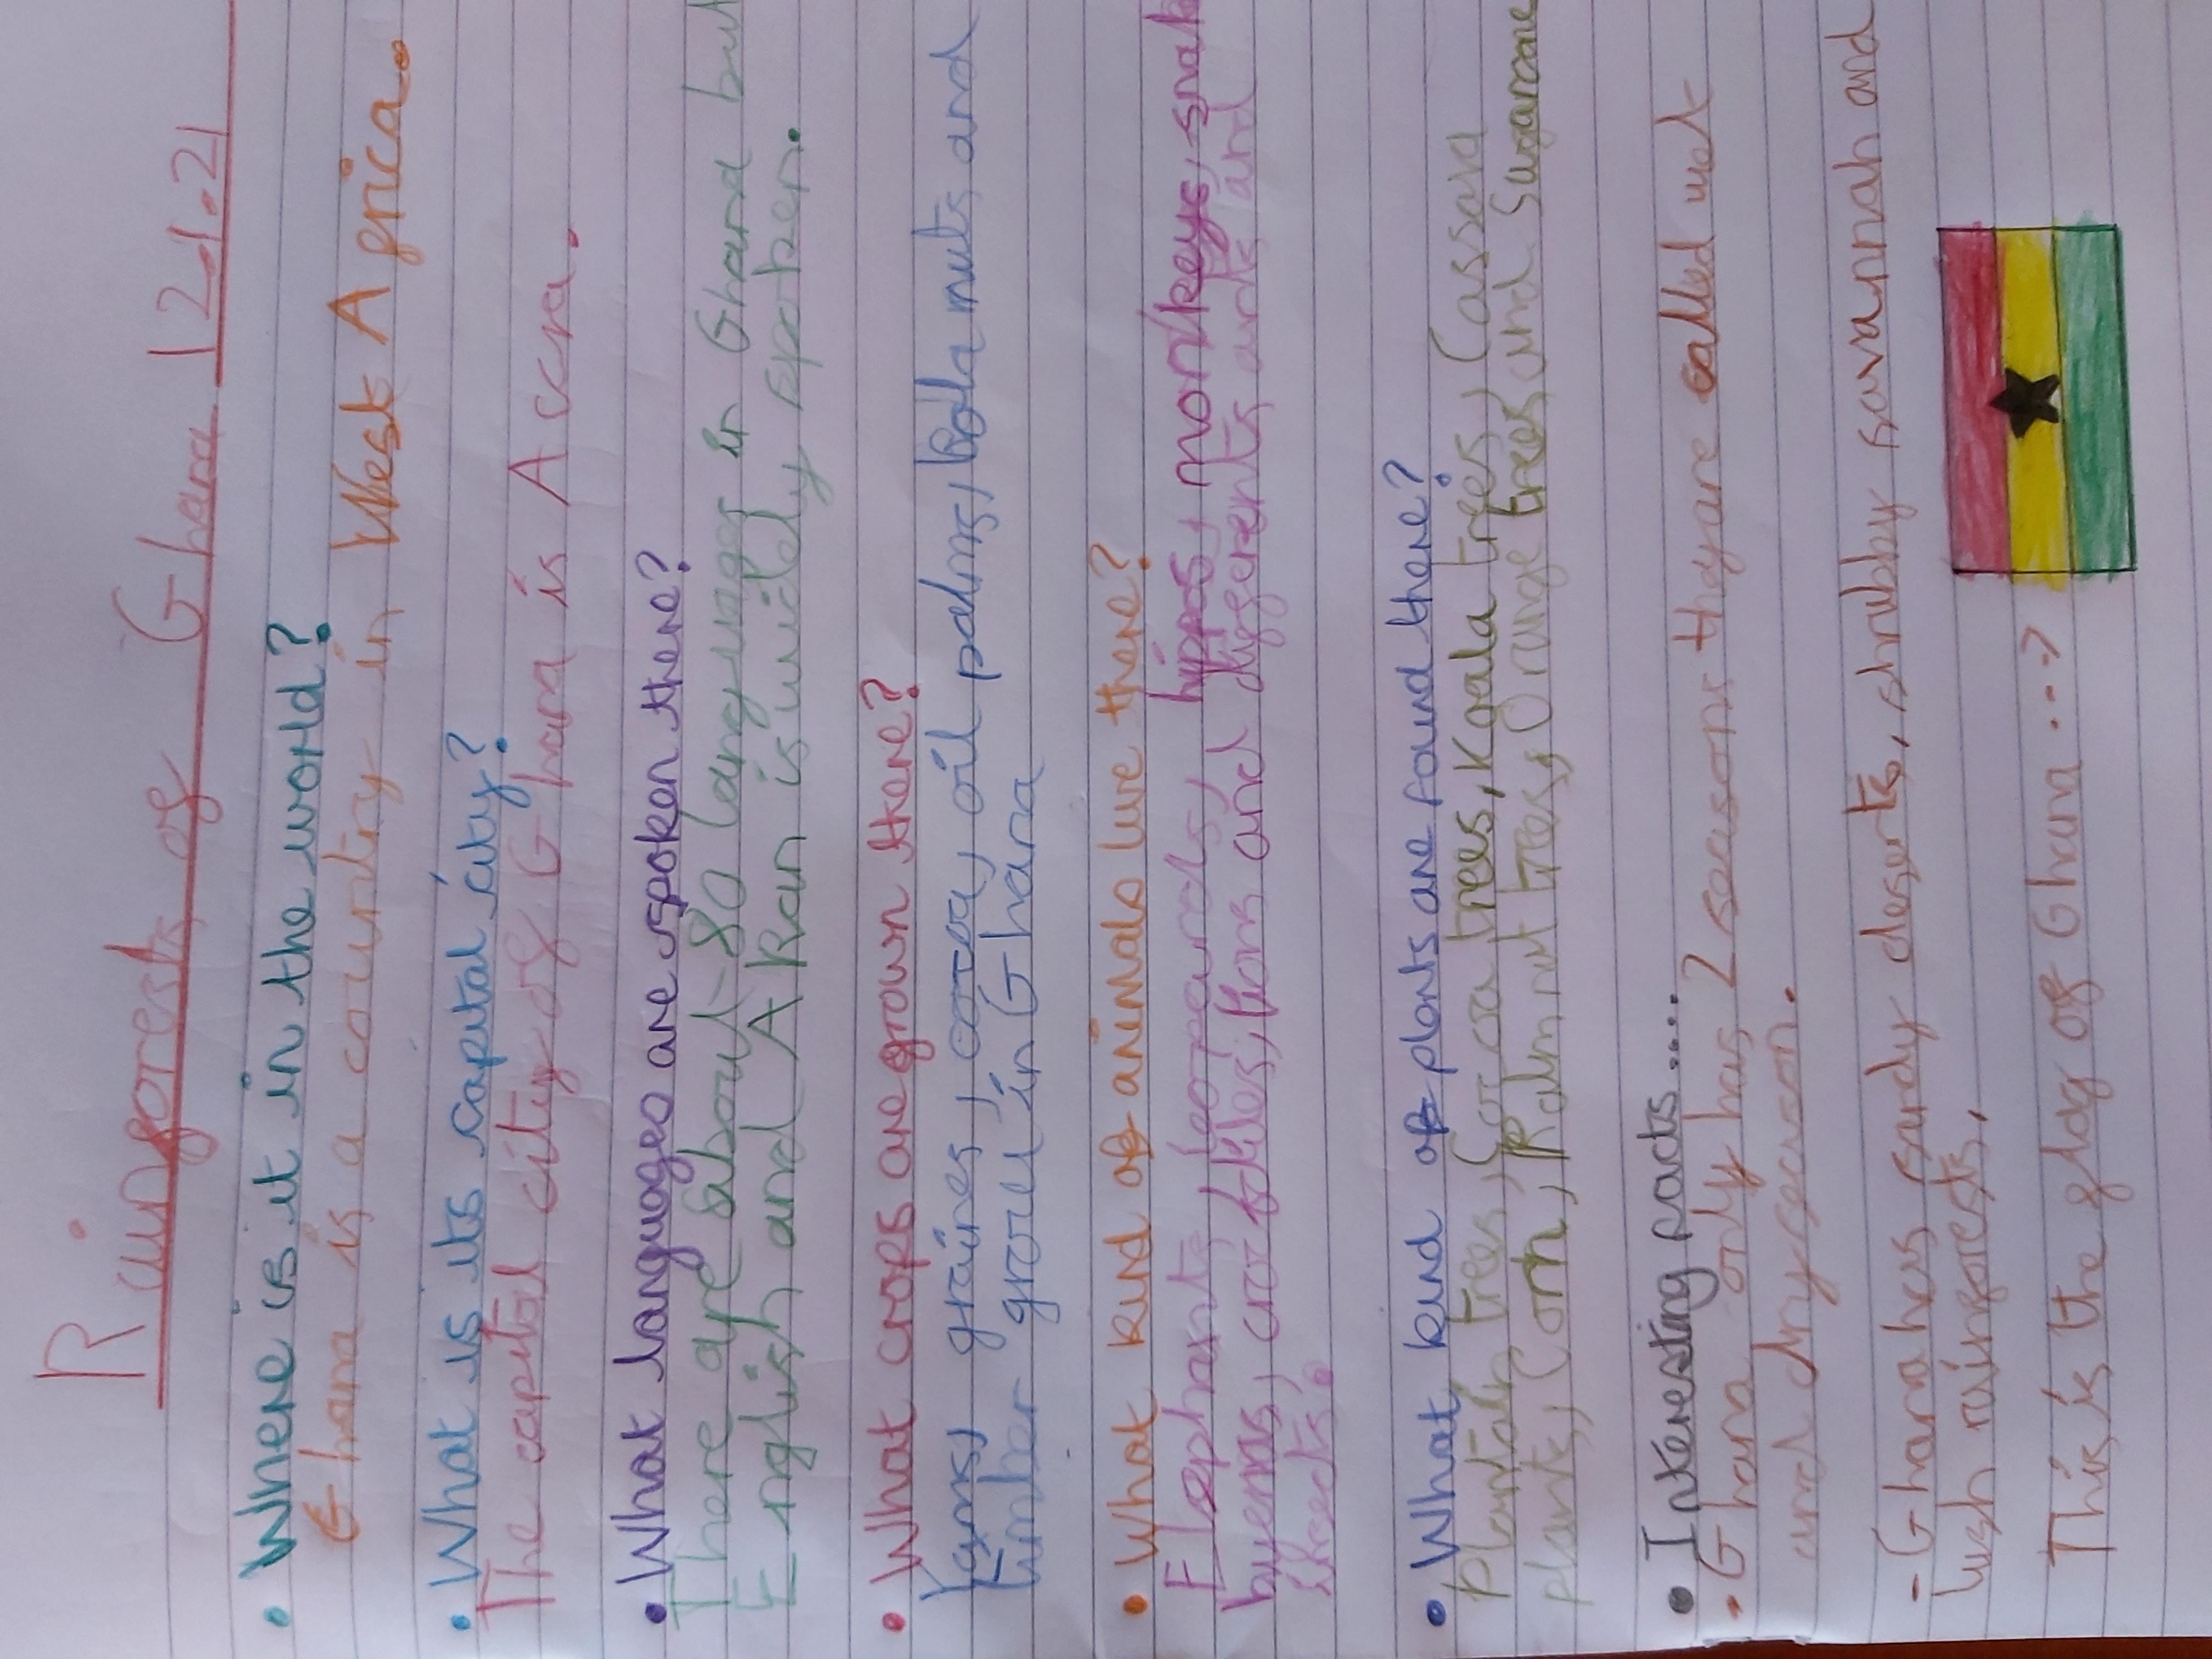 Rainforests of Ghana 12.1.21
• Where is it in the world?
Ghana is a country in West Africa.
• What is its capital city?
The capital city of Ghana is Accra.
• What languages are spoken there?
There are about 80 languages in Ghana but
English and AKan is widely spoken.
• What crops are grown there?
Yams, graines, cocoa, oil palms, Kola nuts and
timber grow in Ghana
• What kind of animals live there?
Elephants, leopards, hippos, monkeys, snak
hyenas, crocodiles, lions and differents ants and
insects.
• What kind of plants are found there?
Plantain trees, Cocoa trees, Kgala trees, Cassava
plants, Corn, Palm nut trees, Orange trees and Sugarcane
• Interesting facts.....
- Ghana only has 2 seasons they are called wet
and dry season.
- Ghana has sandy deserts, shrubby savannah and
lush rainforests.
This is the flag of Ghana ...->